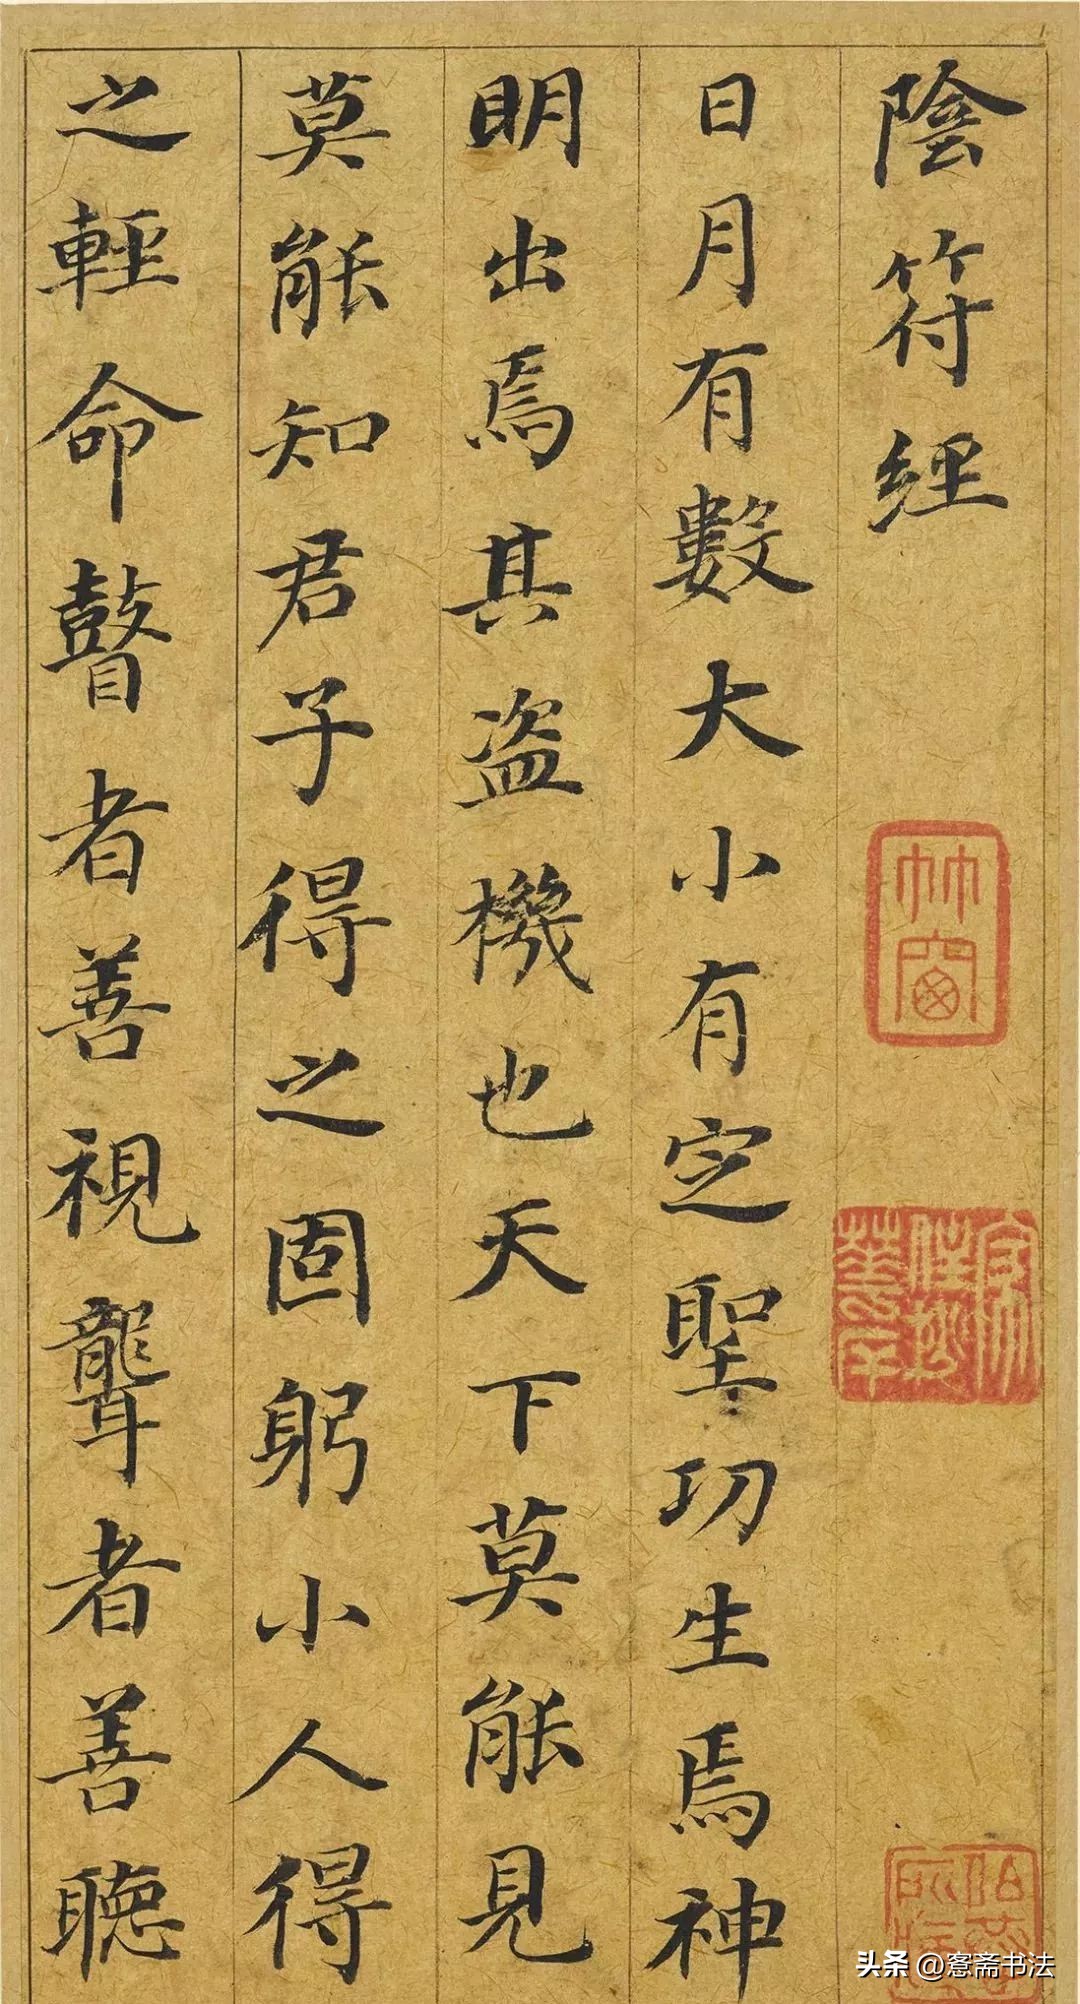 陰符經
日月有數大小有定聖功生焉神
明出焉其盗機也天下莫能見
莫能知君子得之固躬小人得
之輕命瞽者善視聾者善聽
竹窗
头条 @窓斋书法